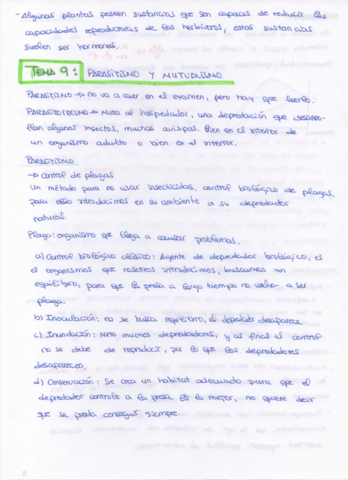 - Algunas plantas poseen sustancias que son capaces de reducir las
capacidades reproductoras de los herbívoros, estas sustancias
suelen ser hormonas.
TEMA 9: PARASITISMO Y MUTUALISMO
PARASITISMO → no va a caer en el examen, pero hay que leerlo.
PARASITOIDISMO → Mata al hospedador, una depredación que desarro-
llan algunos insectos, muchas avispas. Bien en el interior de
un organismo adulto o bien en el interior.
PARASITISMO
→ Control de plagas
Un método para no usar insecticidas, control biológico de plagas,
para ello introducimos en su ambiente a su depredador
natural.
Plaga: organismo que llega a causar problemas.
a) Control biológico clásico: Agente de depredador biológico, es
el organismos que nosotros introducimos, buscamos un
equilibrio, para que la presa a largo tiempo no vuelva a ser
plaga.
b) Inoculación: no se busca equilibrio, el depredador desaparece.
c) Inundación: Meto muchos depredadores, y al final el control
no se debe de reproducir, por lo que los depredadores
desaparecen.
d) Conservación: Se crea un habitat adecuado para que el
depredador controle a la presa. Es la mejor, no quiere decir
que se pueda conseguir siempre.